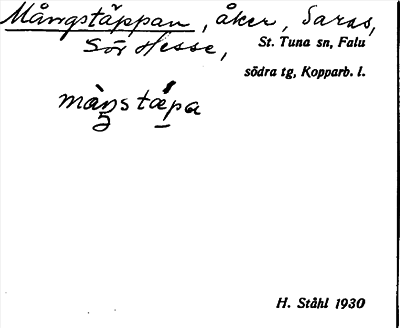 Mångstäppan, åker, Saras,
Sör Hesse,
St. Tuna sn, Falu
södra tg, Kopparb. l.
H. Ståhl 1930